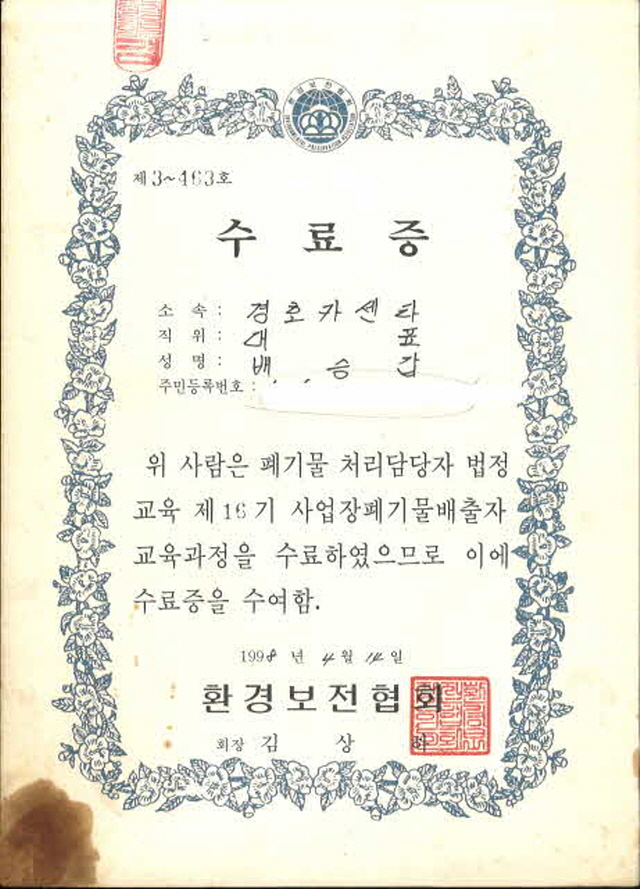 환경보전협회
ENVIRONMENTAL PRESERVATION ASSOCIATION
제 3~463호
수 료 증
소 속 : 경호카센타
직 위 : 대 표
성 명 : 배 승 갑
주민등록번호 :
위 사람은 폐기물 처리담당자 법정
교육 제 16 기 사업장폐기물배출자
교육과정을 수료하였으므로 이에
수료증을 수여함.
1998 년 4 월 14 일
환경보전협회
회장 김 상